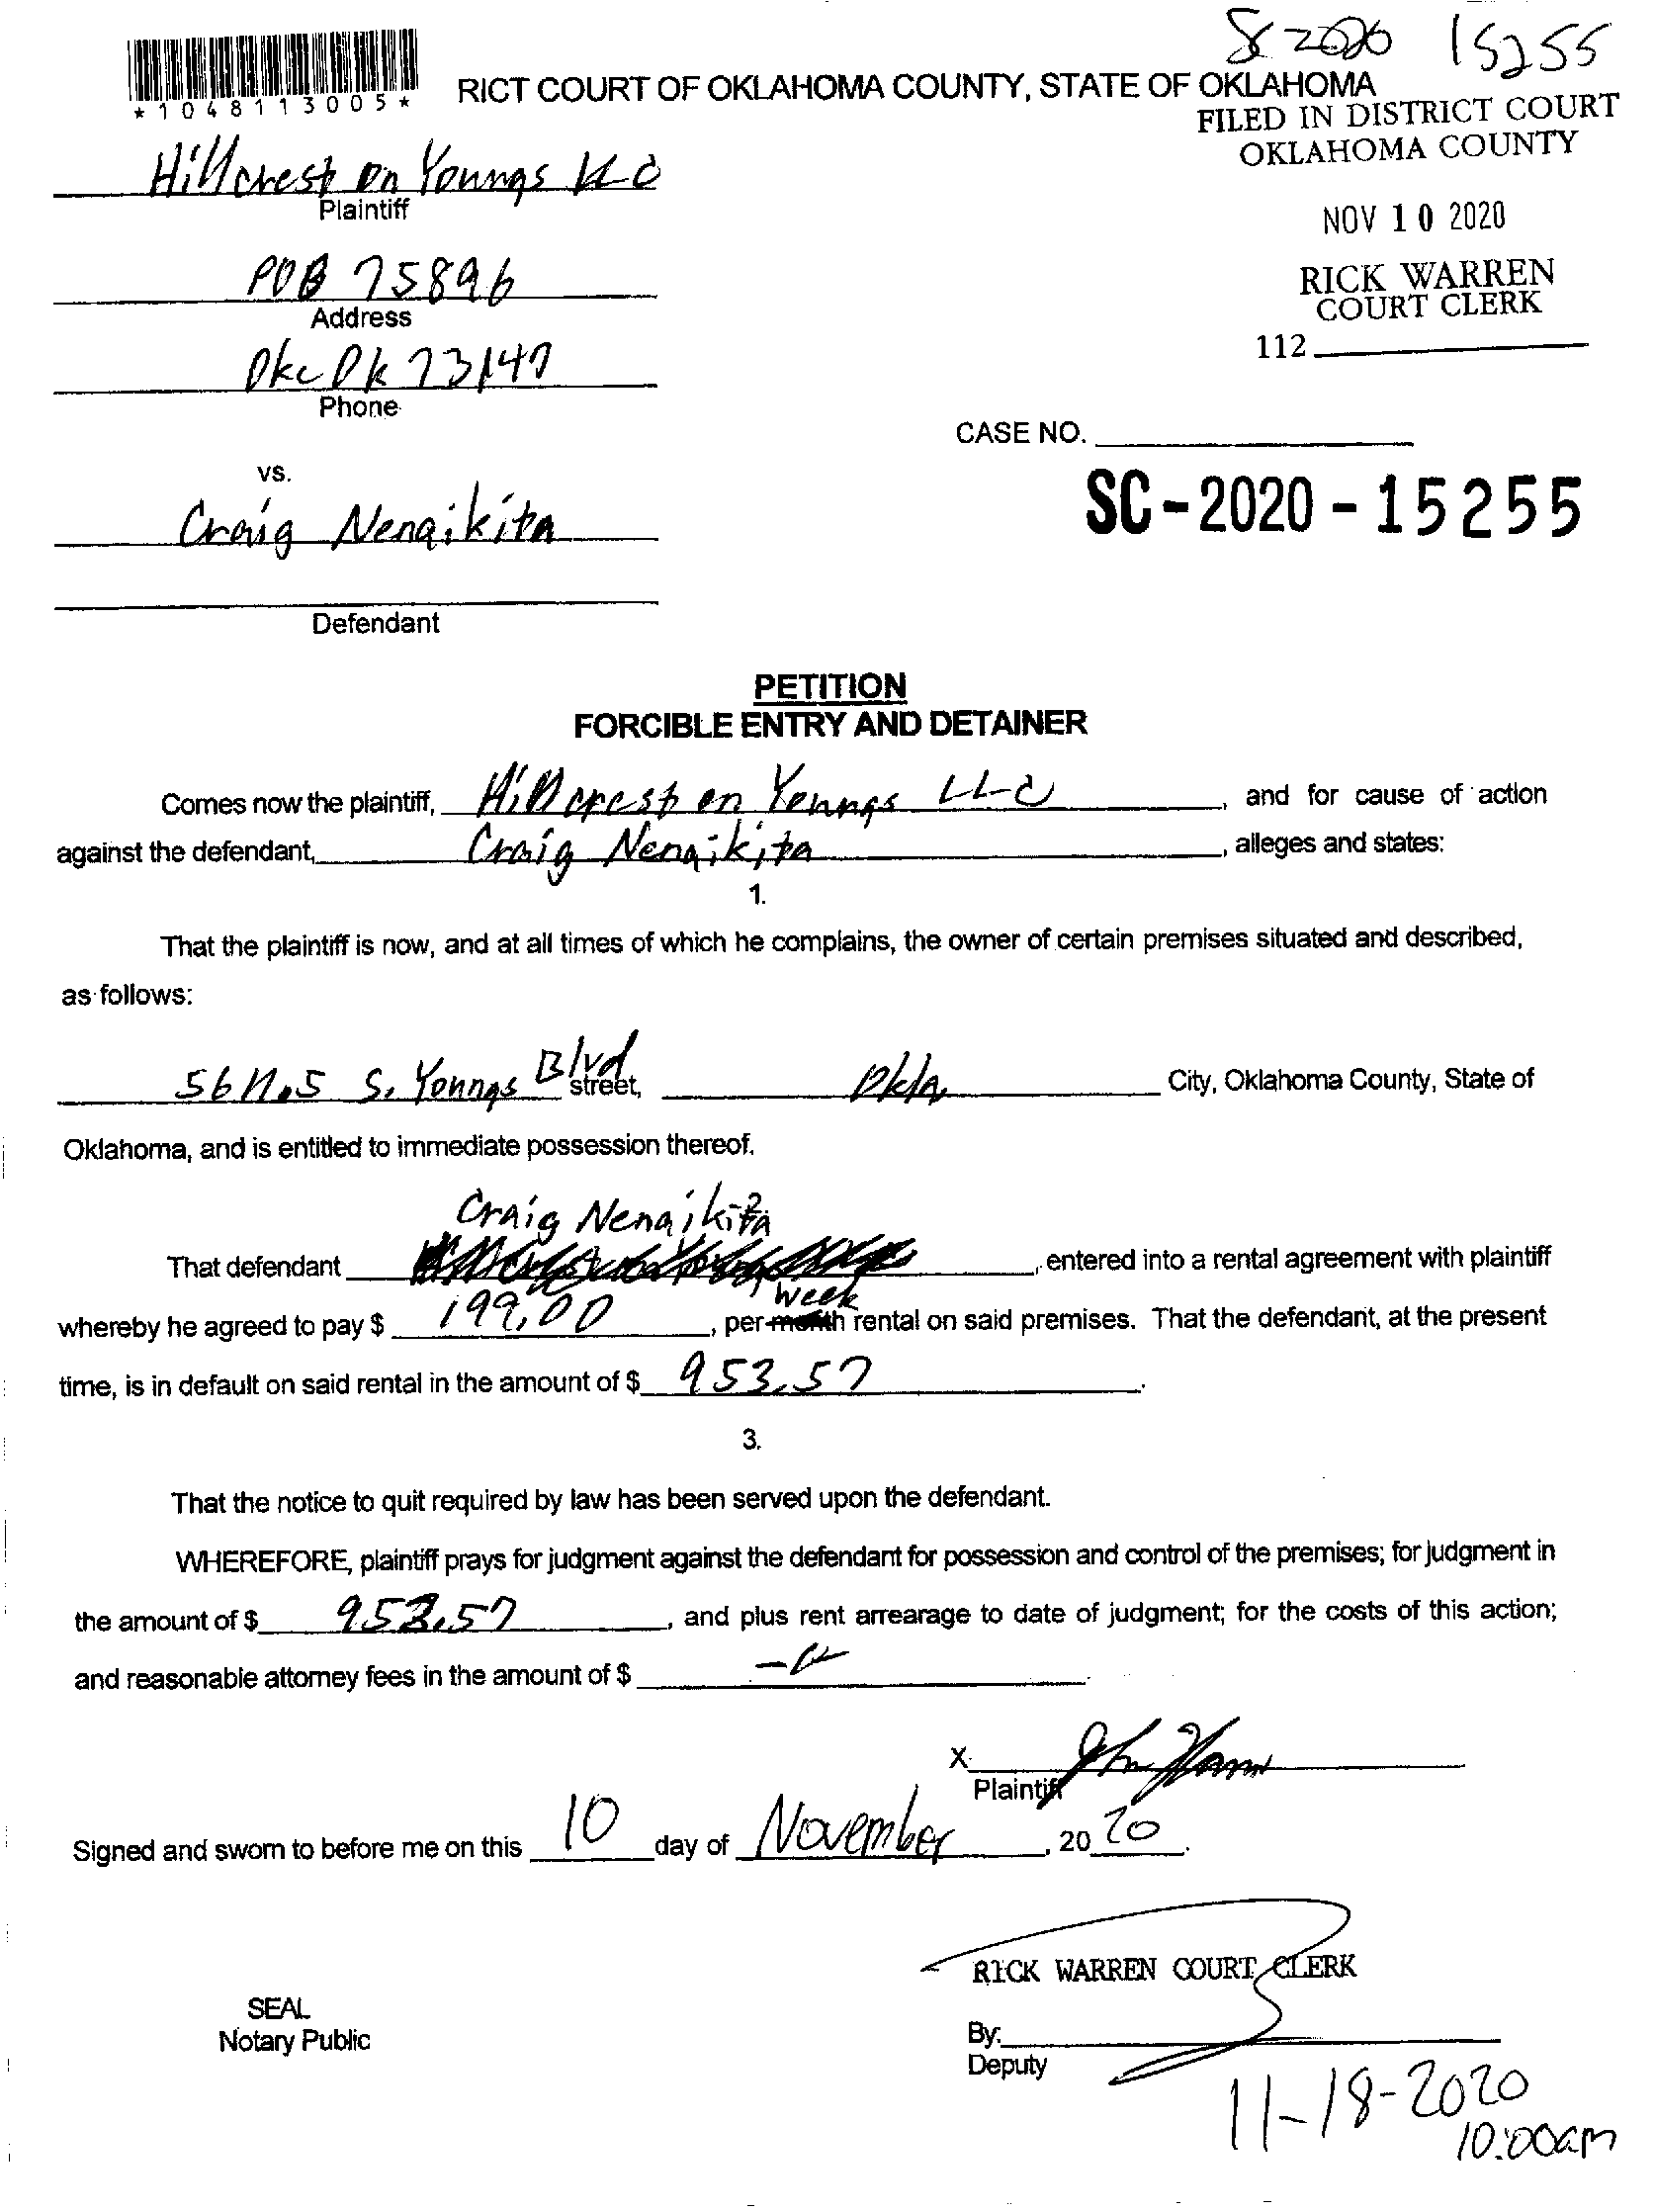 SC 2020 15255
*1048113005*
RICT COURT OF OKLAHOMA COUNTY, STATE OF OKLAHOMA
FILED IN DISTRICT COURT
OKLAHOMA COUNTY
Hillcrest on Youngs LLC
Plaintiff
NOV 10 2020
POB 75896
Address
RICK WARREN
COURT CLERK
112
Okc Ok 73147
Phone
CASE NO.
vs.
SC-2020-15255
Craig Nenaikita
Defendant
PETITION
FORCIBLE ENTRY AND DETAINER
Comes now the plaintiff, Hillcrest on Youngs LLC, and for cause of action
against the defendant, Craig Nenaikita, alleges and states:
1.
That the plaintiff is now, and at all times of which he complains, the owner of certain premises situated and described,
as follows:
S. Youngs Blvd street, Okla City, Oklahoma County, State of
Oklahoma, and is entitled to immediate possession thereof.
Craig Nenaikita
That defendant, entered into a rental agreement with plaintiff
week
whereby he agreed to pay $ 199.00, per month rental on said premises. That the defendant, at the present
time, is in default on said rental in the amount of $ 953.57.
3.
That the notice to quit required by law has been served upon the defendant.
WHEREFORE, plaintiff prays for judgment against the defendant for possession and control of the premises; for judgment in
the amount of $ 953.57, and plus rent arrearage to date of judgment; for the costs of this action;
and reasonable attorney fees in the amount of $
X
Plaintiff
Signed and sworn to before me on this 10 day of November, 2020.
RICK WARREN COURT CLERK
SEAL
Notary Public
By:
Deputy
11-18-2020
10:00am